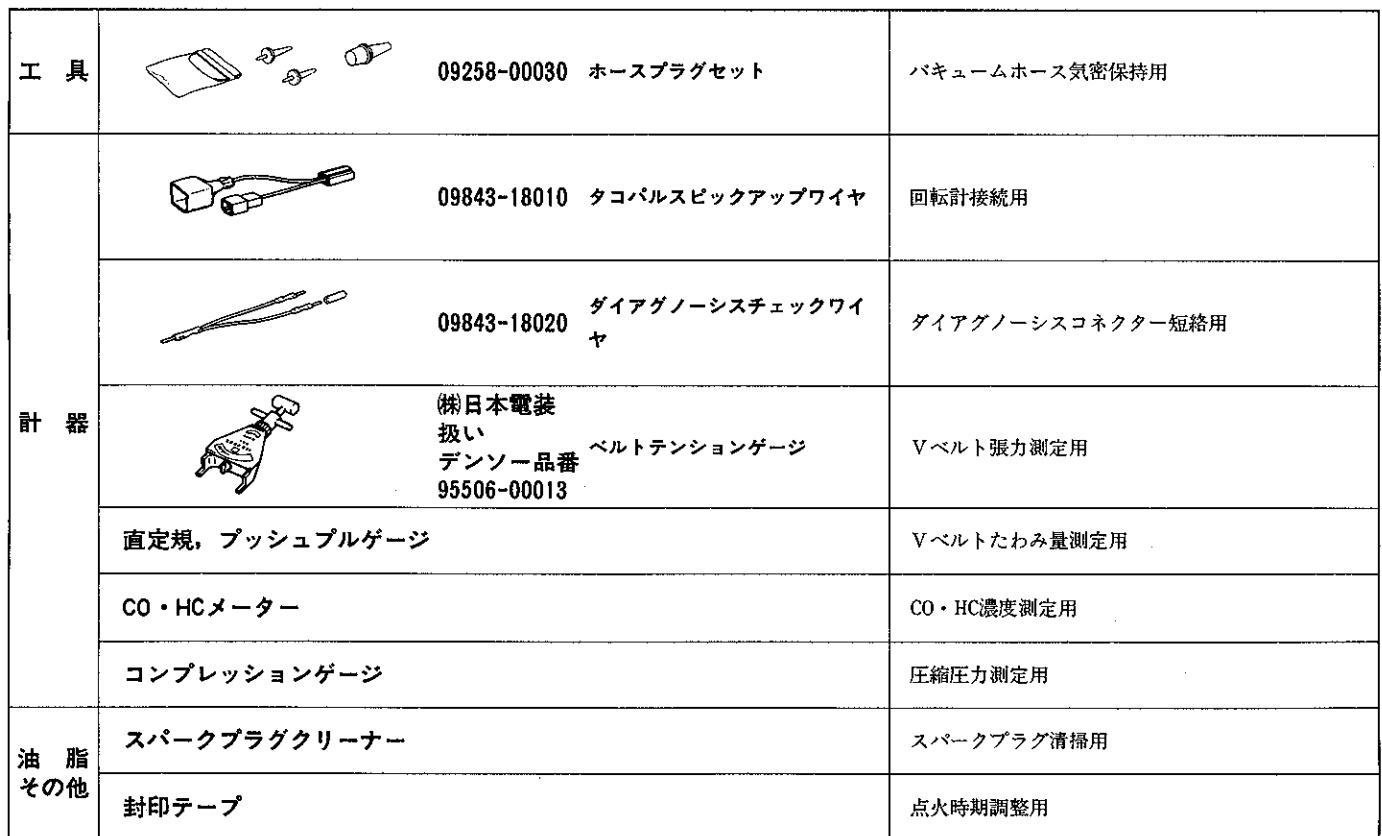 工 具
09258-00030 ホースプラグセット バキュームホース気密保持用
計 器
09843-18010 タコパルスピックアップワイヤ 回転計接続用
09843-18020 ダイアグノーシスチェックワイ
ヤ
ダイアグノーシスコネクター短絡用
㈱日本電装
扱い
デンソー品番
95506-00013
ベルトテンションゲージ Vベルト張力測定用
直定規,プッシュプルゲージ Vベルトたわみ量測定用
CO・HCメーター CO・HC濃度測定用
コンプレッションゲージ 圧縮圧力測定用
油 脂
その他
スパークプラグクリーナー スパークプラグ清掃用
封印テープ 点火時期調整用